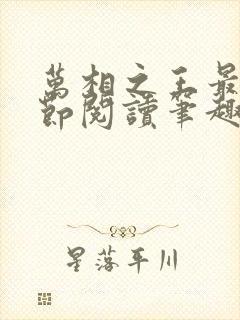 萬相之王最
節閱讀筆趣
星落平川